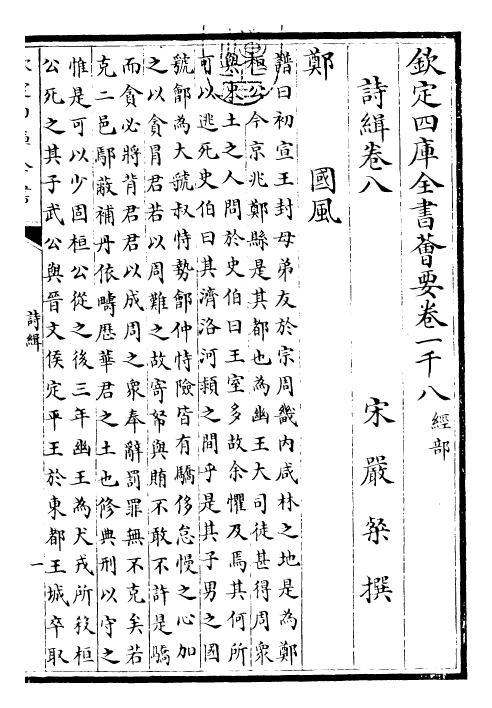 欽定四庫全書薈要卷一千八 經部
詩緝卷八 宋 嚴粲 撰
鄭 國風
譜曰初宣王封母弟友於宗周畿內咸林之地是為鄭
桓公今京兆鄭縣是其都也為幽王大司徒甚得周衆
與東土之人問於史伯曰王室多故余懼及焉其何所
可以逃死史伯曰其濟洛河潁之間乎是其子男之國
虢鄶為大虢叔恃勢鄶仲恃險皆有驕侈怠慢之心加
之以貪冒君若以周難之故寄帑與賄不敢不許是驕
而貪必將背君君以成周之衆奉辭罰罪無不克矣若
克二邑鄢蔽補丹依疇歷華君之土也修典刑以守之
惟是可以少固桓公從之後三年幽王為犬戎所殺桓
公死之其子武公與晉文侯定平王於東都王城卒取
詩緝
一